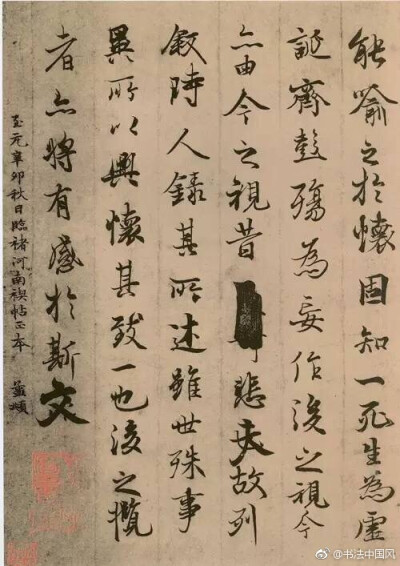 能喻之於懷固知一死生為虛
誕齊彭殤為妄作後之視今
亦由今之視昔悲夫故列
敘時人錄其所述雖世殊事
異所以興懷其致一也後之攬
者亦將有感於斯文
至元辛卯秋日臨褚河南禊帖正本
@书法中国风